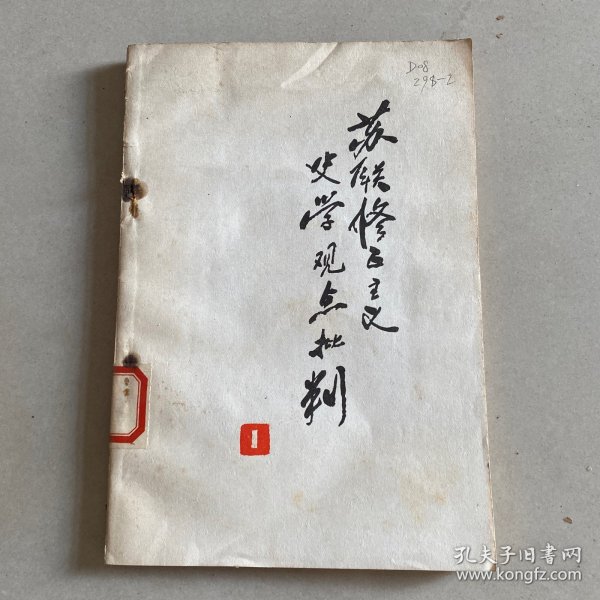 D08
298-2
苏联修正主义
史学观点批判
1
孔夫子旧书网
www.kongfz.com